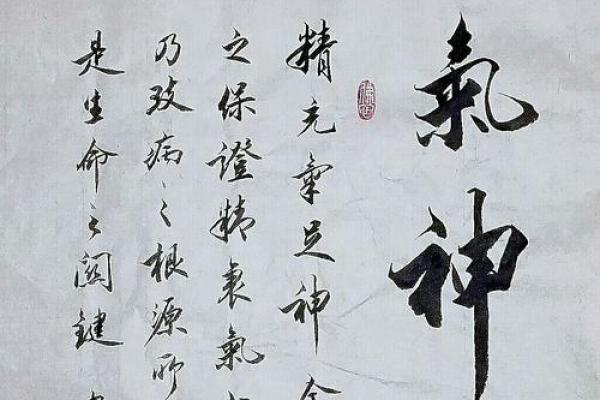 氣神
精充氣足神全
之保證精衰氣
乃致病之根源所
是生命之關鍵